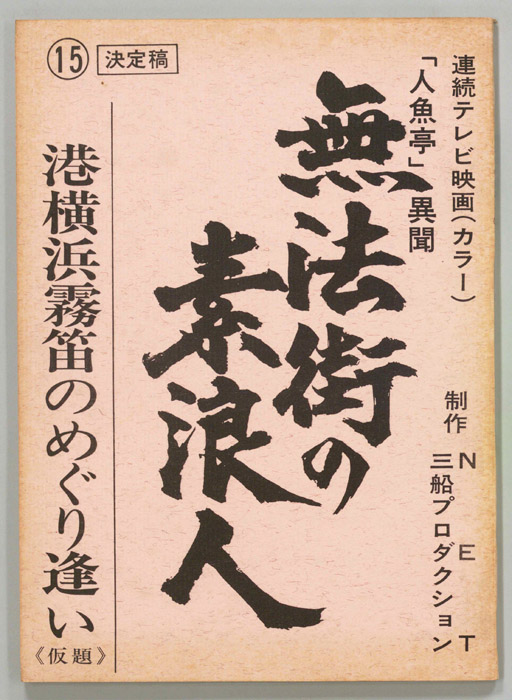 連続テレビ映画(カラー)
「人魚亭」異聞
無法街の
素浪人
制作 NET
三船プロダクション
⑮ 決定稿
港横浜霧笛のめぐり逢い
《仮題》